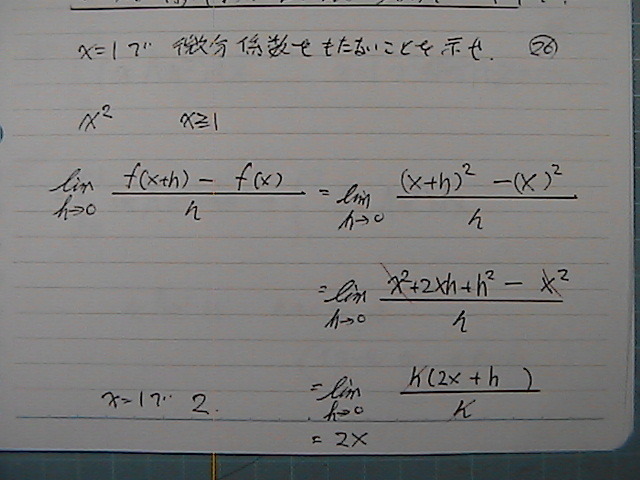 x=1で 微分係数をもたないことを示せ. ㉖
x² x≧1
lim h→0 (f(x+h) - f(x))/h = lim h→0 ((x+h)² - (x)²)/h
= lim h→0 (x²+2xh+h² - x²)/h
x=1で 2. = lim h→0 h(2x+h)/h
= 2x